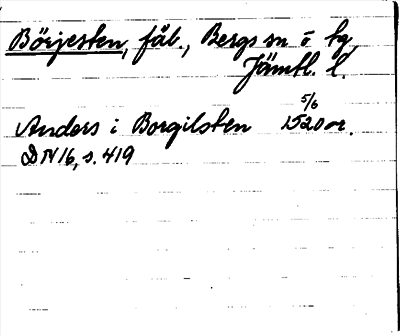 Börjesten, fäb., Bergs sn o hg,
Jämtl. l.
5/6
Anders i Borgilsten 1520 or.
DN 16, s. 419